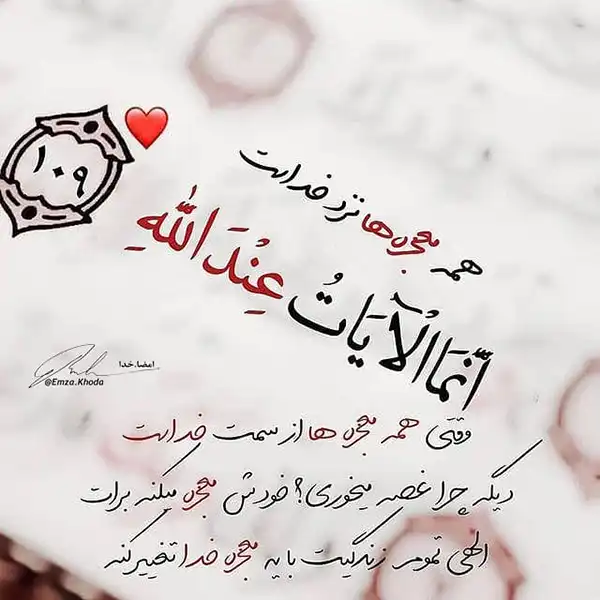 همه معجزه ها نزد خداست
إنَّمَا الْآيَاتُ عِنْدَ اللَّهِ
١٠٩
امضا.خدا
@Emza.Khoda
وقتی همه معجزه ها از سمت خداست
دیگه چرا غصه میخوری؟ خودش معجزه میکنه برات
الهی تموم زندگیت با یه معجزه خدا تغییر کنه